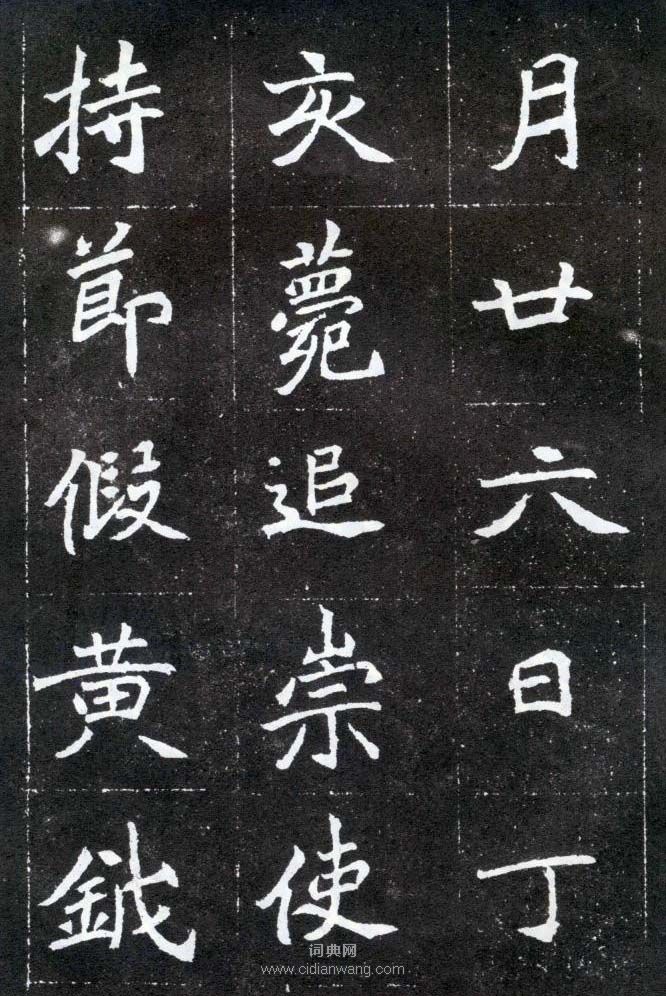 月廿六日丁
亥薨追崇使
持節假黄鉞
词典网
www.cidianwang.com